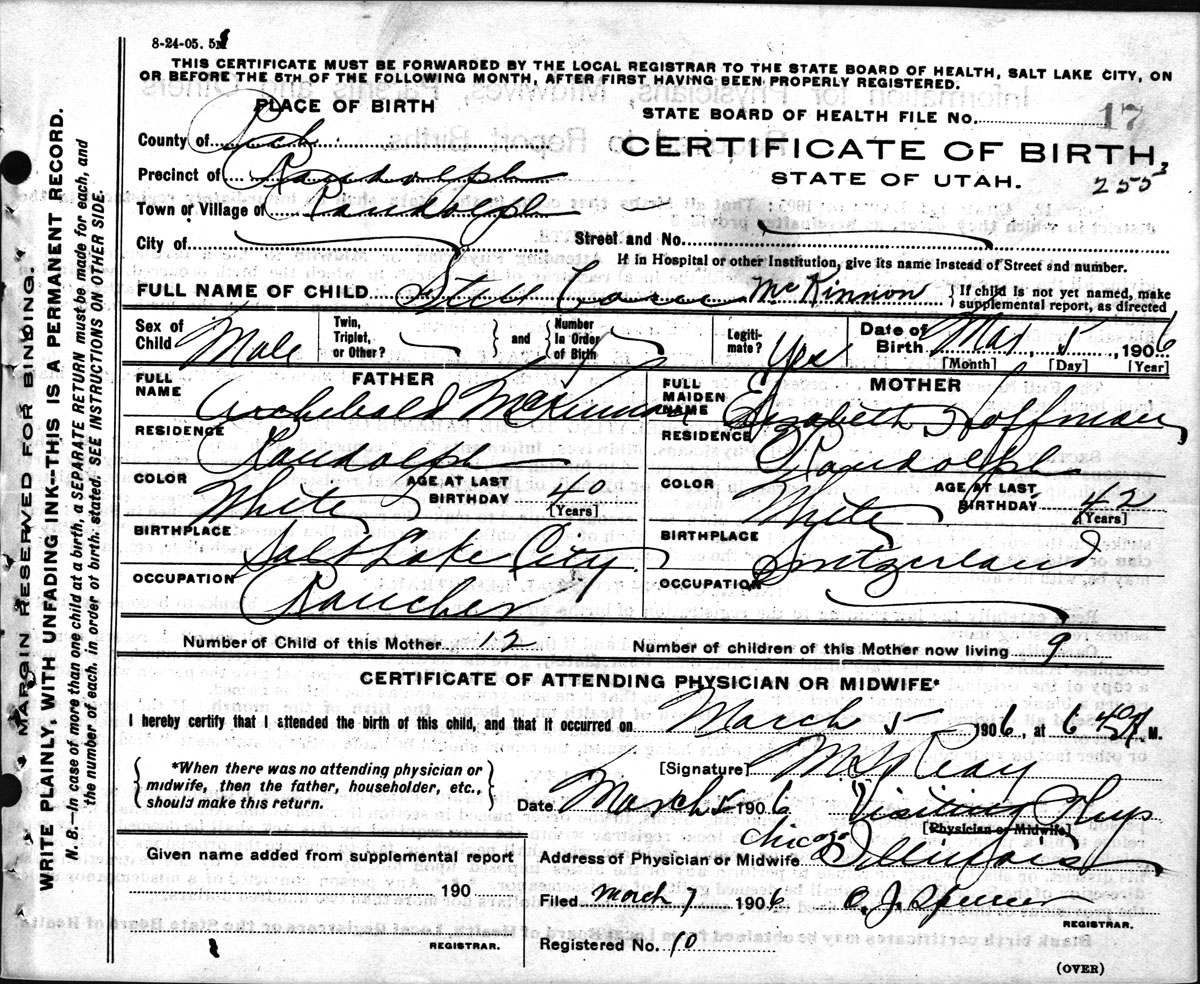 8-24-05. 5M
THIS CERTIFICATE MUST BE FORWARDED BY THE LOCAL REGISTRAR TO THE STATE BOARD OF HEALTH, SALT LAKE CITY, ON
OR BEFORE THE 5TH OF THE FOLLOWING MONTH, AFTER FIRST HAVING BEEN PROPERLY REGISTERED.
PLACE OF BIRTH
STATE BOARD OF HEALTH FILE No. 17
County of Rich
CERTIFICATE OF BIRTH,
Precinct of Randolph
STATE OF UTAH.
255 3
Town or Village of Randolph
City of
Street and No.
If in Hospital or other Institution, give its name instead of Street and number.
FULL NAME OF CHILD McKinnon
If child is not yet named, make
supplemental report, as directed
Sex of
Child Male
Twin,
Triplet,
or Other?
and
Number
In Order
of Birth
Legiti-
mate? Yes
Date of
Birth Mar 5, 1906
[Month] [Day] [Year]
FATHER
FULL
NAME Archebald McKinnon
RESIDENCE
Randolph
COLOR White
AGE AT LAST
BIRTHDAY 40
[Years]
BIRTHPLACE
Salt Lake City
OCCUPATION
Rancher
MOTHER
FULL
MAIDEN
NAME Elizabeth Hoffman
RESIDENCE
Randolph
COLOR White
AGE AT LAST
BIRTHDAY 42
[Years]
BIRTHPLACE
Switzerland
OCCUPATION
Number of Child of this Mother 12
Number of children of this Mother now living 9
CERTIFICATE OF ATTENDING PHYSICIAN OR MIDWIFE*
I hereby certify that I attended the birth of this child, and that it occurred on March 5 1906, at 6 40 A M.
*When there was no attending physician or
midwife, then the father, householder, etc.,
should make this return.
[Signature] Reay
Date March 5 1906 Visiting Phys
[Physician or Midwife]
Given name added from supplemental report
190
REGISTRAR.
Address of Physician or Midwife Chicago Illinois
Filed March 7 1906 O. J. Spencer
REGISTRAR.
Registered No. 10
(OVER)
MARGIN RESERVED FOR BINDING.
WRITE PLAINLY, WITH UNFADING INK--THIS IS A PERMANENT RECORD.
N. B.—In case of more than one child at a birth, a SEPARATE RETURN must be made for each, and
the number of each, in order of birth, stated. SEE INSTRUCTIONS ON OTHER SIDE.